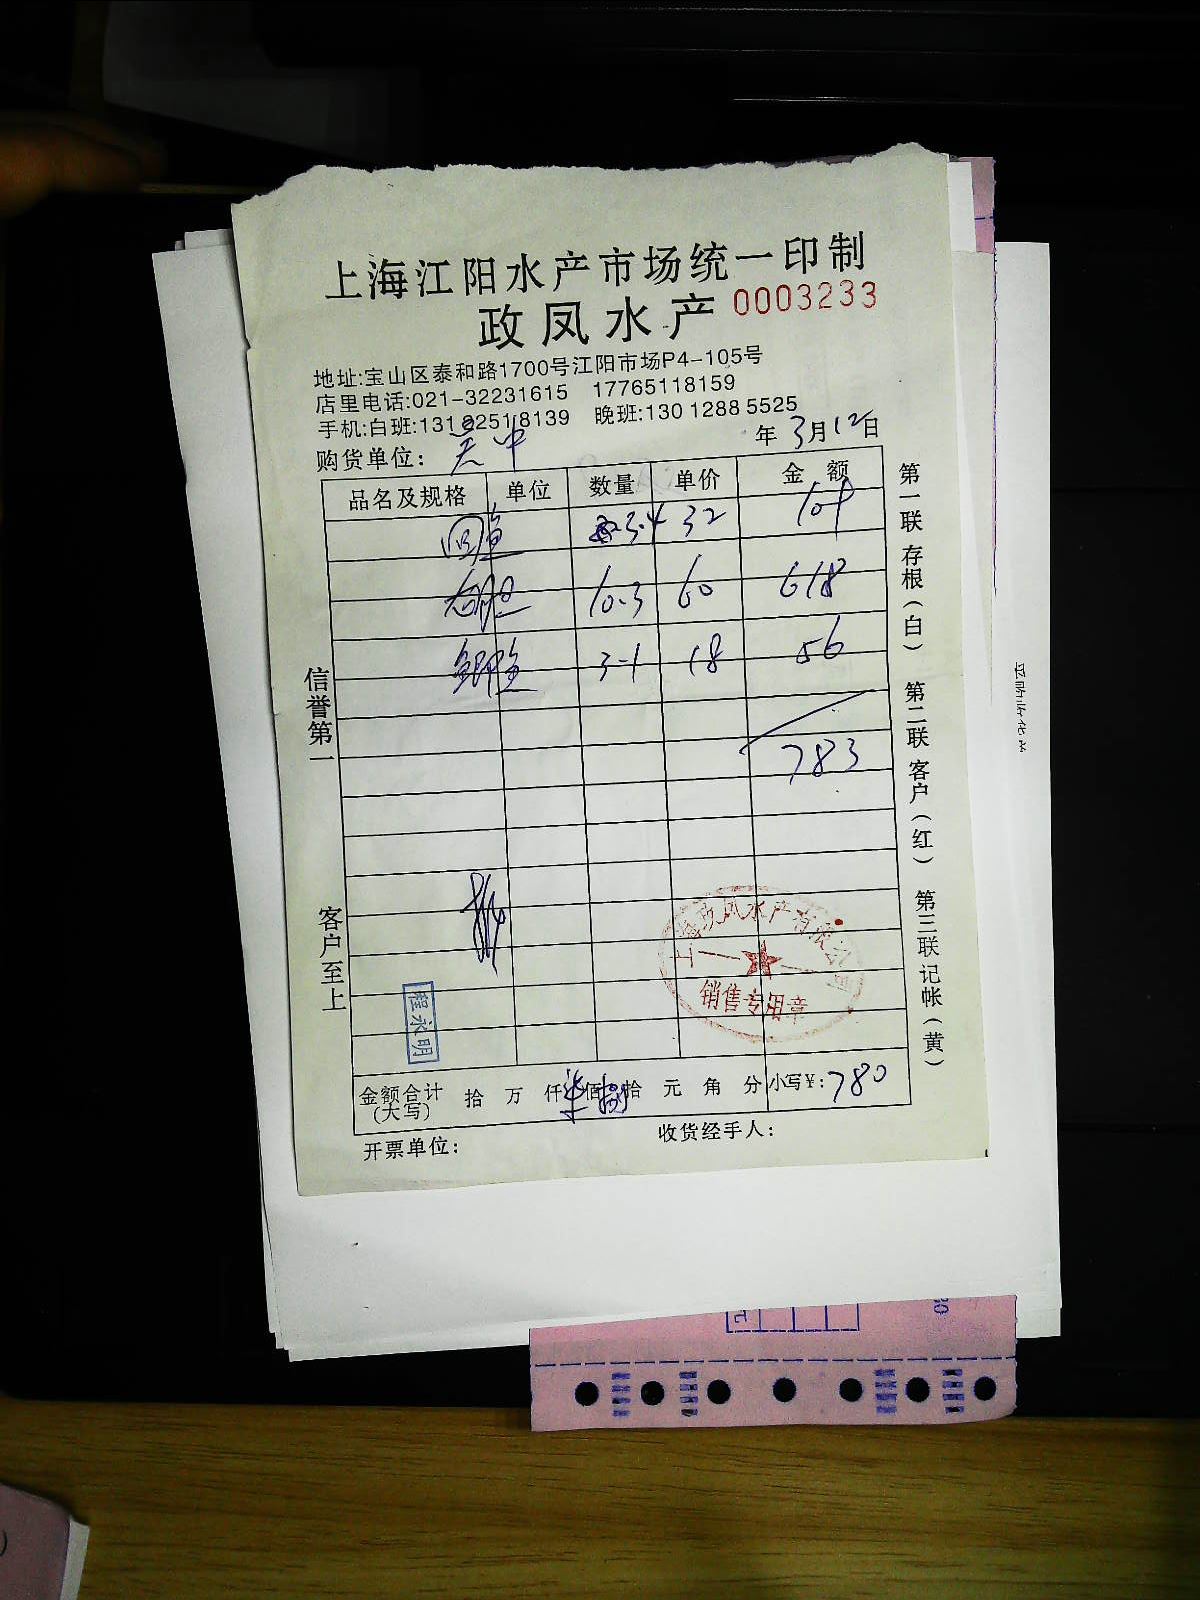 上海江阳水产市场统一印制
政凤水产 0003233
地址:宝山区泰和路1700号江阳市场P4-105号
店里电话:021-32231615 17765118159
手机:白班:131 2251 8139 晚班:130 1288 5525
购货单位: 年 3月12日
品名及规格 单位 数量 单价 金额
回鱼 3.4 32 109
10.3 60 618
鲫鱼 3.1 18 56
783
金额合计(大写) 拾 万 仟 佰 拾 元 角 分 小写¥: 780
开票单位: 收货经手人:
信誉第一
客户至上
第一联存根(白) 第二联客户(红) 第三联记帐(黄)
上海政凤水产有限公司
销售专用章
程永明